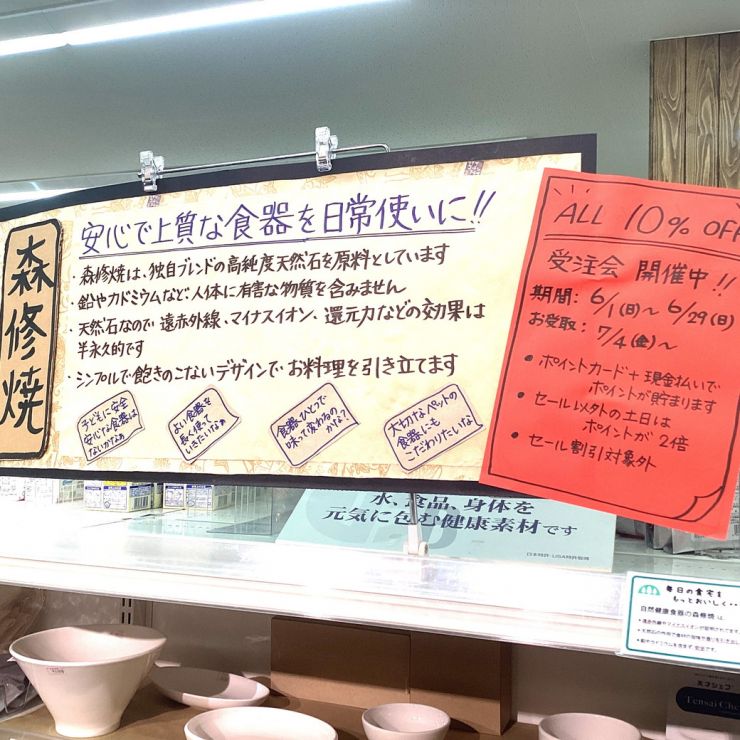 森修焼
安心で上質な食器を日常使いに!!
・森修焼は、独自ブレンドの高純度天然石を原料としています
・鉛やカドミウムなど人体に有害な物質を含みません
・天然石なので 遠赤外線、マイナスイオン、還元力などの効果は
半永久的です
・シンプルで飽きのこないデザインで お料理を引き立てます
子どもに安全
安心な食器は
ないかなぁ
よい食器を
長く使って
いきたいなぁ
食器ひとつで
味って変わるの
かな?
大切なペットの
食器にも
こだわりたいな
ALL 10% OFF
受注会 開催中!!
期間: 6/1(日)〜 6/29(日)
お受取: 7/4(金)〜
・ポイントカード+現金払いで
ポイントが貯まります
・セール以外の土日は
ポイントが2倍
・セール割引対象外
水、食品、身体を
元気に包む健康素材です
日本特許・USA特許取得
毎日の食宅を
もっとおいしく・・
自然健康食器の森修焼は、
Tensai Che